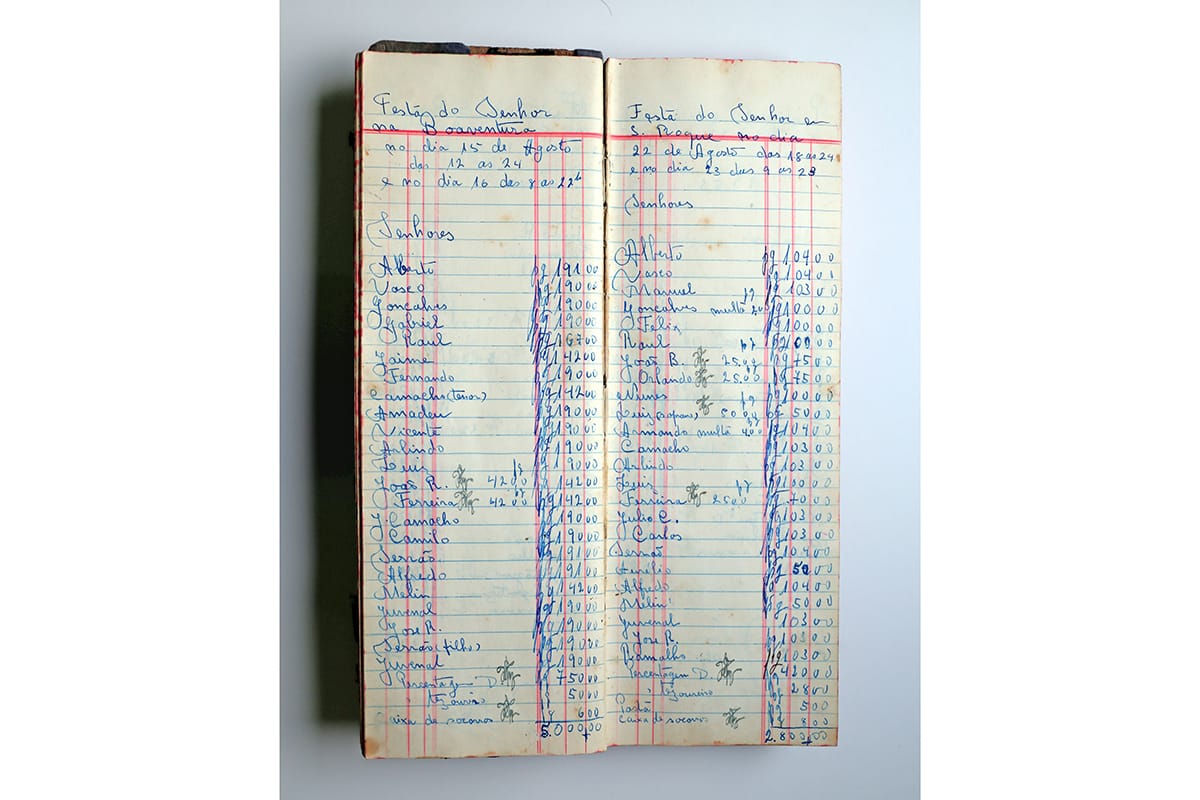 Festa do Senhor
na Boaventura
no dia 15 de Agosto
das 12 as 24
e no dia 16 das 8 as 22h
Senhores
Alberto pg 191 00
Vasco pg 190 00
Gonçalves pg 190 00
Gabriel pg 190 00
Raul pg 167 00
Jaime pg 142 00
Fernando pg 190 00
Camacho (tenor) pg 142 00
Amadeu pg 190 00
Vicente pg 190 00
Arlindo pg 190 00
Luiz pg 190 00
João R. 42 00 pg pg 142 00
Ferreira 42 00 pg pg 142 00
J. Camacho pg 190 00
Camilo pg 190 00
Serrão pg 191 00
Alfredo pg 191 00
Melin pg 142 00
Juvenal pg 190 00
José R. pg 190 00
Serrão (filho) pg 190 00
Juvenal pg 190 00
Percentagem D. pg 750 00
" tezoureiro 50 00
Caixa de socorros 6 00
5.000 00
Festa do Senhor em
S. Roque no dia
22 de Agosto das 18 as 24
e no dia 23 das 9 as 23
Senhores
Alberto pg 104 00
Vasco pg 104 0
Manuel pg 103 00
Gonçalves multa 20 pg pg 100 00
Felix pg 100 00
Raul pg 100 00
João B. 25.00 pg pg 75 00
Orlando 25.00 pg 75 00
Nunes pg 100 00
Luiz (soprano) 50 00 pg pg 50 00
Armando multa 4 00 pg pg 104 00
Camacho pg 103 00
Arlindo pg 103 00
Luiz pg 100 00
Ferreira 25 00 pg pg 70 00
Julio C. pg 103 00
Carlos pg 103 00
Serrão pg 104 00
Aurélio pg 50 00
Alfredo pg 104 00
Melin pg 50 00
Juvenal 103 00
José R. pg 103 00
Ramalho pg 103 00
Percentagem D. pg 420 00
" tezoureiro 28 00
Pasta pg 5 00
Caixa de socorros 8 00
2.800 00